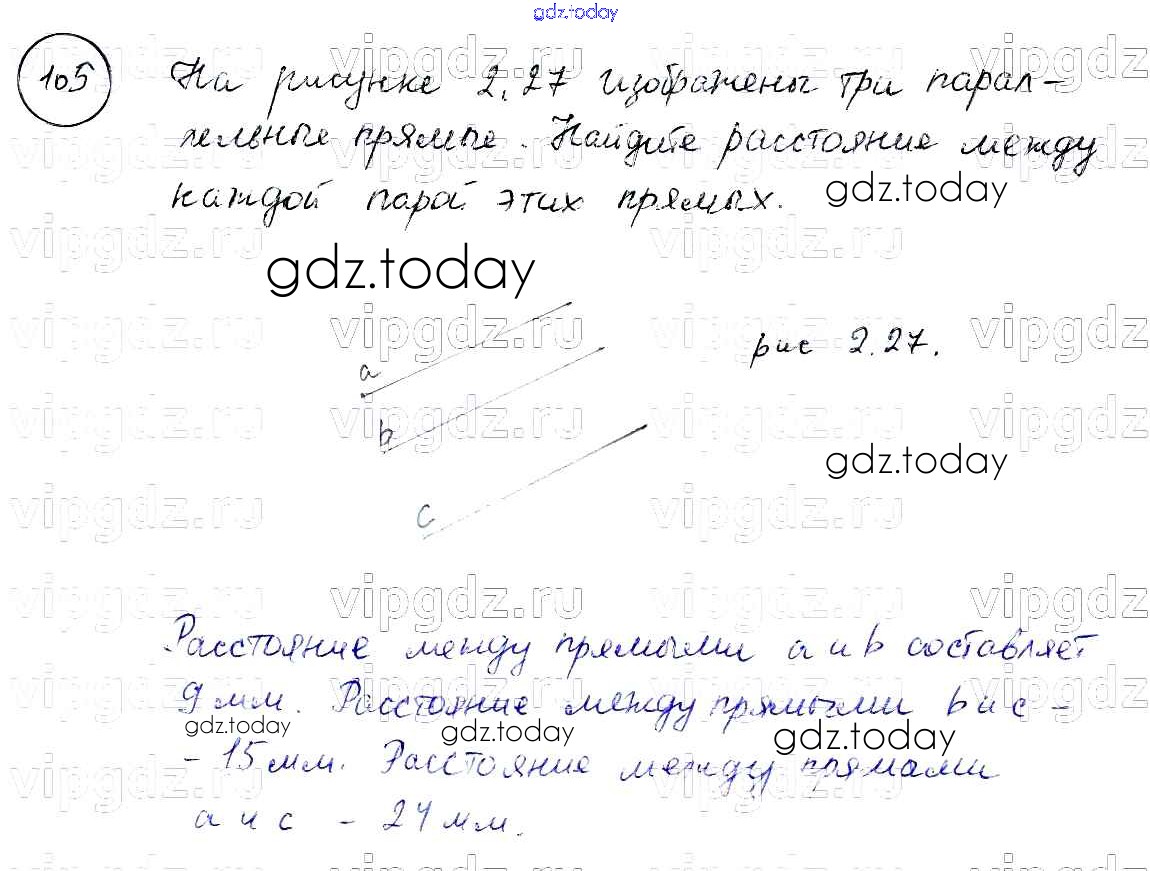 gdz.today
105 На рисунке 2.27 изображены три парал-
лельные прямые. Найдите расстояние между
каждой парой этих прямых.
gdz.today
gdz.today
a
рис 2.27.
b
gdz.today
c
Расстояние между прямыми a и b составляет
9 мм. Расстояние между прямыми b и c -
gdz.today
gdz.today
- 15 мм. Расстояние между прямами
a и c - 24 мм.
vipgdz.ru vipgdz.ru vipgdz.ru vipgdz.ru